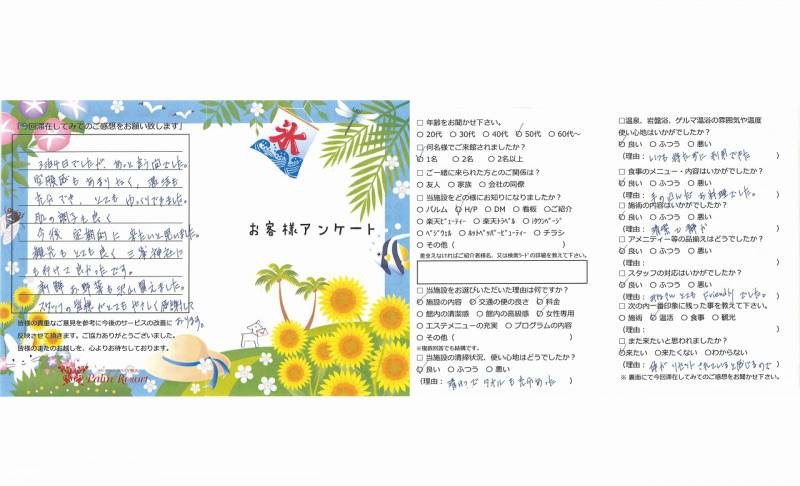 「今回滞在してみてのご感想をお願い致します」
3泊4日でしたが、あっと言う間でした。
空腹感もあまりなく、
充分でき、とてもゆっくりできました。
肌の調子も良く
今後 定期的に 来たいと思いました。
観光もとても良く 三峯神社に
も行けて良かったです。
新鮮お野菜も沢山買えました。
スタッフの皆様がとてもやさしく感謝して
おります。
皆様の貴重なご意見を参考に今後のサービスの改善に
反映させて頂きます。ご協力ありがとうございました。
皆様のまたのお越しを、心よりお待ちしております。
Palm Resort
氷
お客様アンケート
□ 年齢をお聞かせ下さい。
○ 20代 ○ 30代 ○ 40代 ○ 50代 ○ 60代～
□ 何名様でご来館されましたか?
○ 1名 ○ 2名 ○ 2名以上
□ ご一緒に来られた方とのご関係は?
○ 友人 ○ 家族 ○ 会社の同僚
□ 当施設をどの様にお知りになりましたか?
○ パルム ○ H/P ○ DM ○ 看板 ○ご紹介
○ 楽天ビューティー ○ 楽天トラベル ○ iタウンページ
○ ベジウェル ○ ホットペッパービューティー ○ チラシ
○ その他 ( )
差支えなければご紹介者様名、又は検索ワードの詳細を教えて下さい。
□ 当施設をお選びいただいた理由は何ですか?
○ 施設の内容 ○ 交通の便の良さ ○ 料金
○ 館内の清潔感 ○ 館内の高級感 ○ 女性専用
○ エステメニューの充実 ○ プログラムの内容
○ その他 ( )
※複数回答でも結構です。
□ 当施設の清掃状況、使い心地はどうでしたか?
○ 良い ○ ふつう ○ 悪い
(理由: 清けつで タオルも充分あった )
□温泉、岩盤浴、ゲルマ温浴の雰囲気や温度
使い心地はいかがでしたか?
○ 良い ○ ふつう ○ 悪い
(理由: いつも待たずに利用できた )
□ 食事のメニュー・内容はいかがでしたか?
○ 良い ○ ふつう ○ 悪い
(理由: 手の込んだお料理でした。 )
□ 施術の内容はいかがでしたか?
○ 良い ○ ふつう ○ 悪い
(理由: 清潔で静か )
□ アメニティー等の品揃えはどうでしたか?
○ 良い ○ ふつう ○ 悪い
(理由: )
□ スタッフの対応はいかがでしたか?
○ 良い ○ ふつう ○ 悪い
(理由: とても Friendly でした。 )
□ 次の内一番印象に残った事を教えて下さい。
○ 施術 ○ 温活 ○ 食事 ○ 観光
(理由: )
□ また来たいと思われましたか?
○来たい ○来たくない ○わからない
(理由: 体がリセットされていると感じるので
※ 裏面にて今回滞在してみてのご感想をお聞かせ下さい。